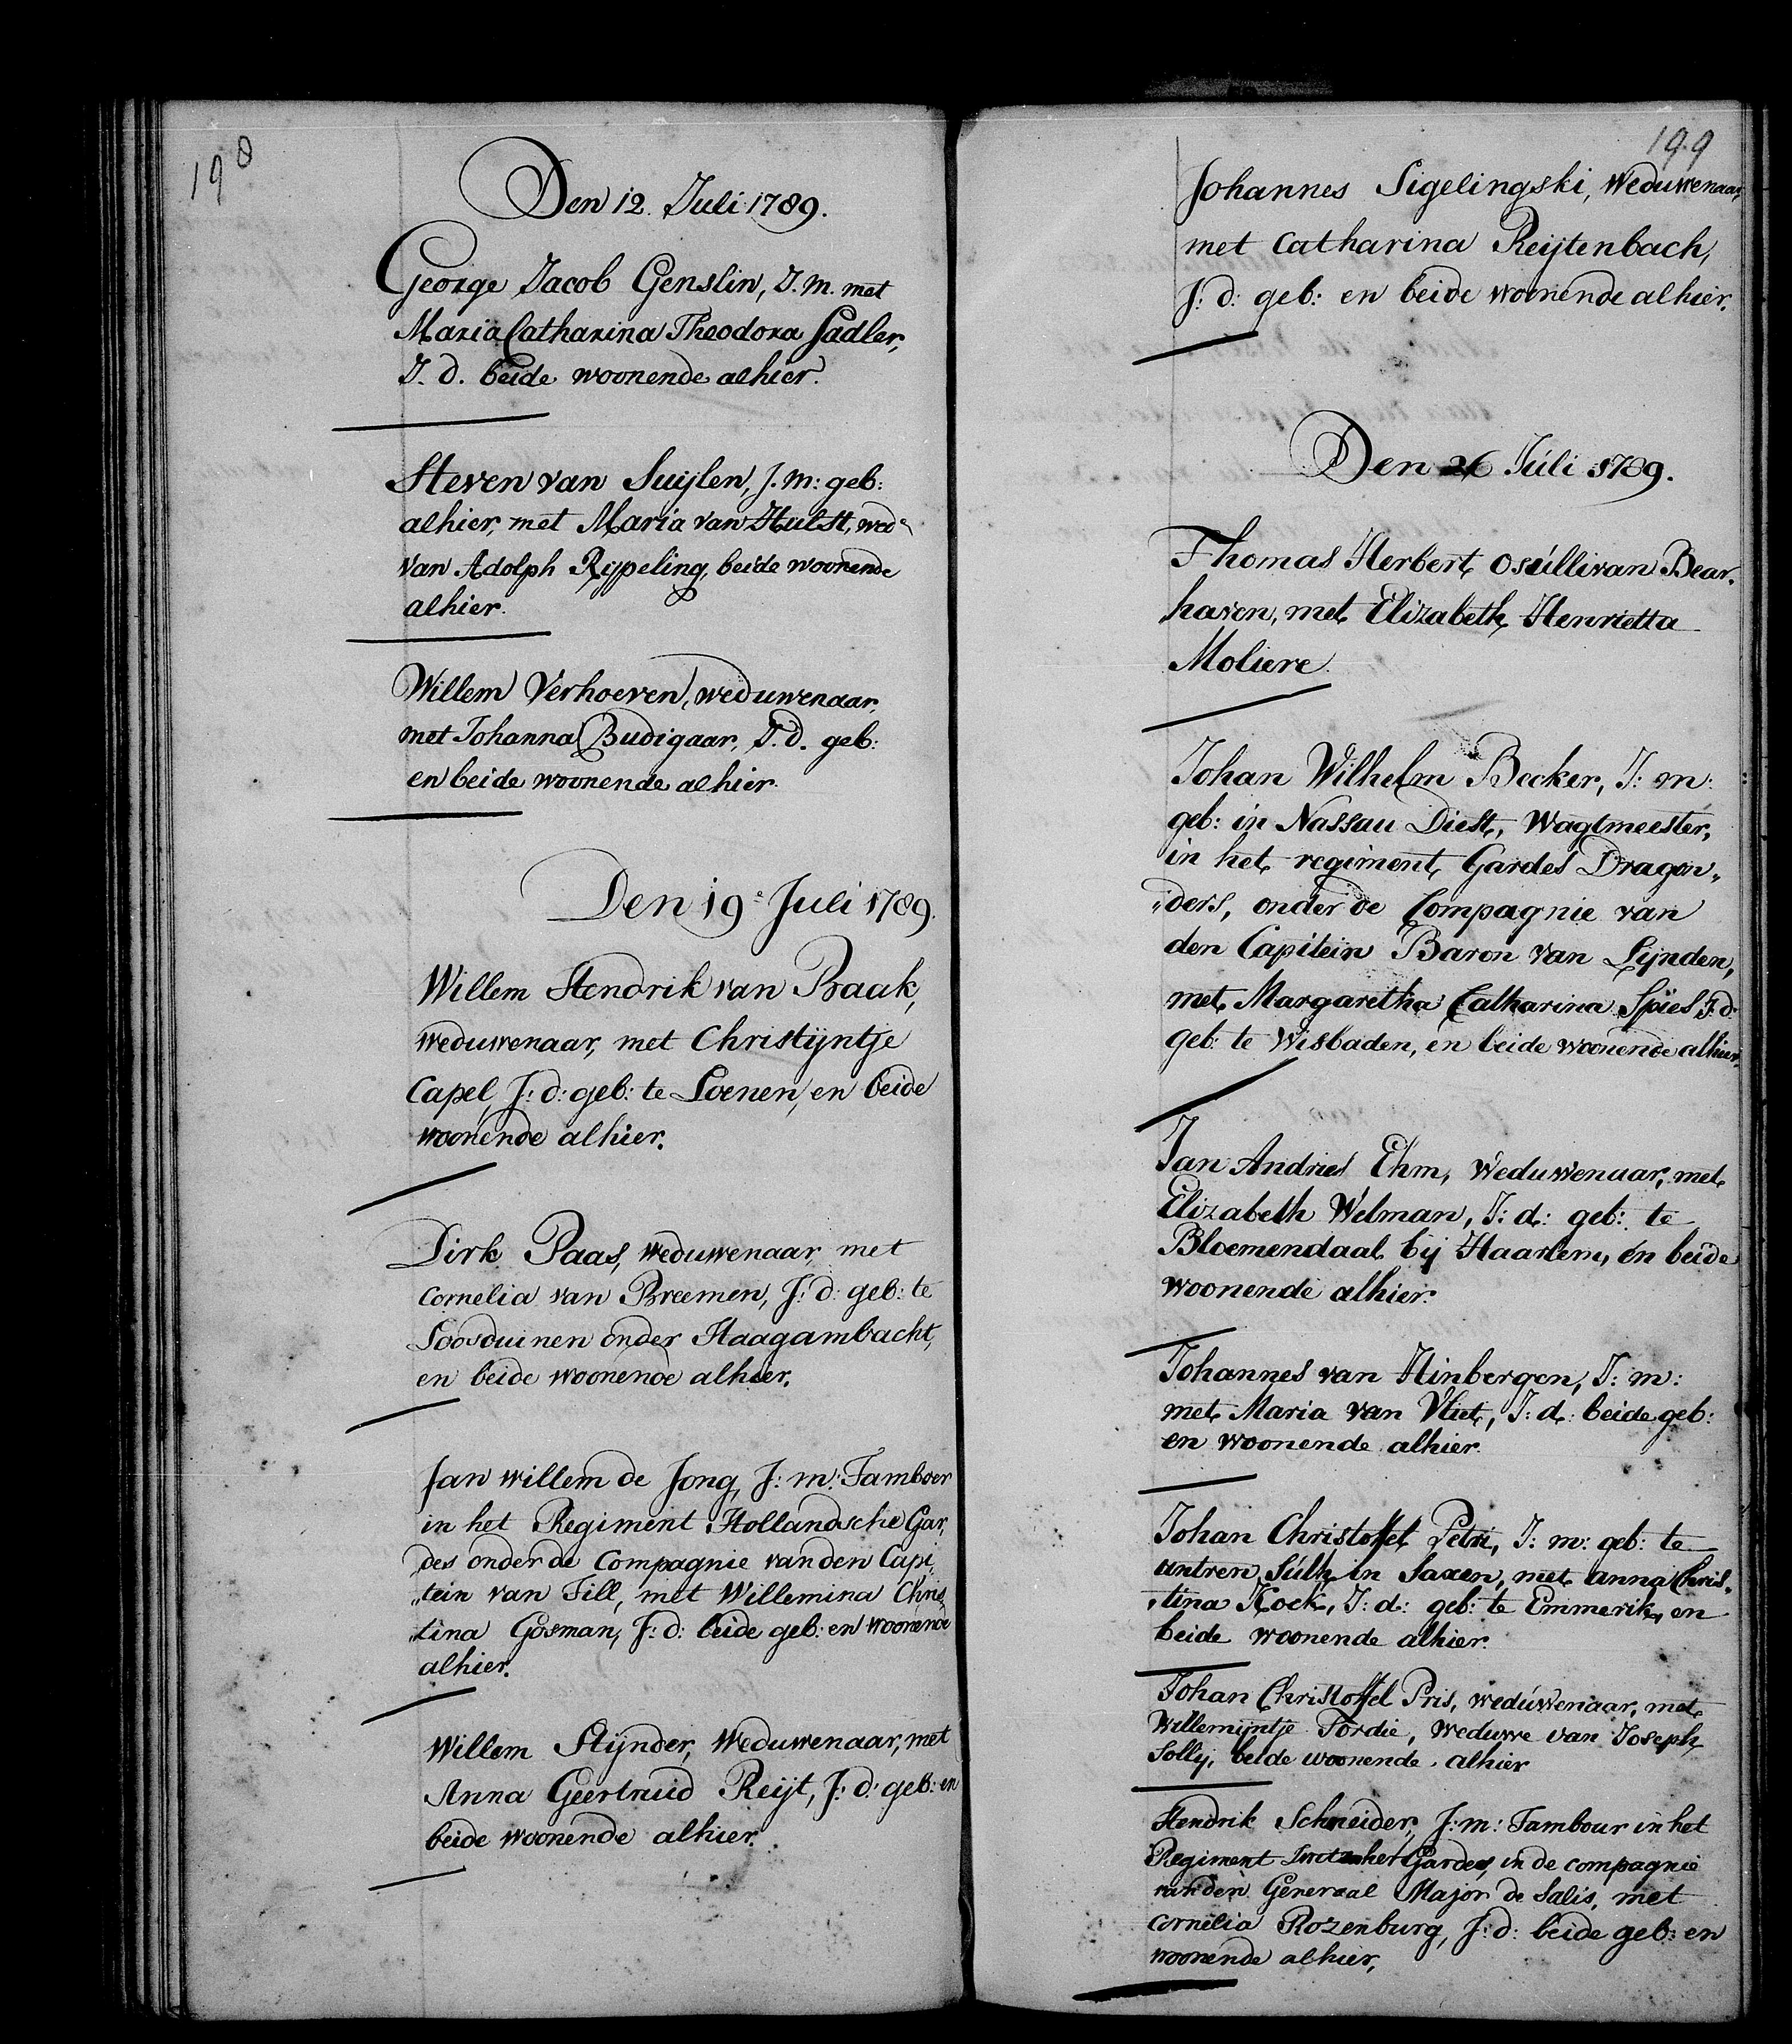 198
Den 12. Juli 1789.
George Jacob Genslin, J. m. met
Maria Catharina Theodora Sadler,
J. d. beide woonende alhier.
Steven van Suijlen, J. m: geb:
alhier, met Maria van Hulst, wed:
van Adolph Rijpeling, beide woonende
alhier.
Willem Verhoeven, weduwenaar,
met Johanna Budigaar, J. d. geb:
en beide woonende alhier.
Den 19e Juli 1789.
Willem Hendrik van Braak,
weduwenaar, met Christijntje
Capel, J: d: geb: te Loenen, en beide
woonende alhier.
Dirk Paas, weduwenaar, met
Cornelia van Breemen, J: d: geb: te
Loosduinen onder Haagambacht,
en beide woonende alhier.
Jan Willem de Jong, J: m: Tamboer
in het Regiment Hollandsche Gar„
des onder de Compagnie van den Capi„
„tein van Till, met Willemina Chris„
„tina Gosman, J: d: beide geb: en woonende
alhier.
Willem Stijnder, Weduwenaar, met
Anna Geertruid Reijt, J: d: geb: en
beide woonende alhier.
199
Johannes Sigelingski, Weduwenaar,
met Catharina Reijtenbach,
J: d: geb: en beide woonende alhier.
Den 26 Juli 1789.
Thomas Herbert Osullivan Bear„
haven, met Elizabeth Henrietta
Moliere.
Johan Wilhelm Becker, J: m:
geb: in Nassau Diest, Wagtmeester,
in het regiment Gardes Dragon„
„ders, onder de Compagnie van
den Capitein Baron van Lijnden,
met Margaretha Catharina Spies J: d:
geb: te Wisbaden, en beide woonende alhier.
Jan Andries Ehm, Weduwenaar, met
Elizabeth Welman, J: d: geb: te
Bloemendaal bij Haarlem, en beide
woonende alhier.
Johannes van Hinbergen, J: m:
met Maria van Vliet, J: d: beide geb:
en woonende alhier.
Johan Christoffel Petri, J: m: geb: te
untren Sulh in Saxen, met Anna Chris„
„tina Kock, J: d: geb: te Emmerik, en
beide woonende alhier.
Johan Christoffel Pris, weduwenaar, met
Willemijntje Tordie, Weduwe van Joseph
Solly, beide woonende alhier
Hendrik Schneider, J: m: Tambour in het
Regiment Gardes, in de compagnie
van den Generaal Major de Salis, met
Cornelia Rozenburg, J: d: beide geb: en
woonende alhier,